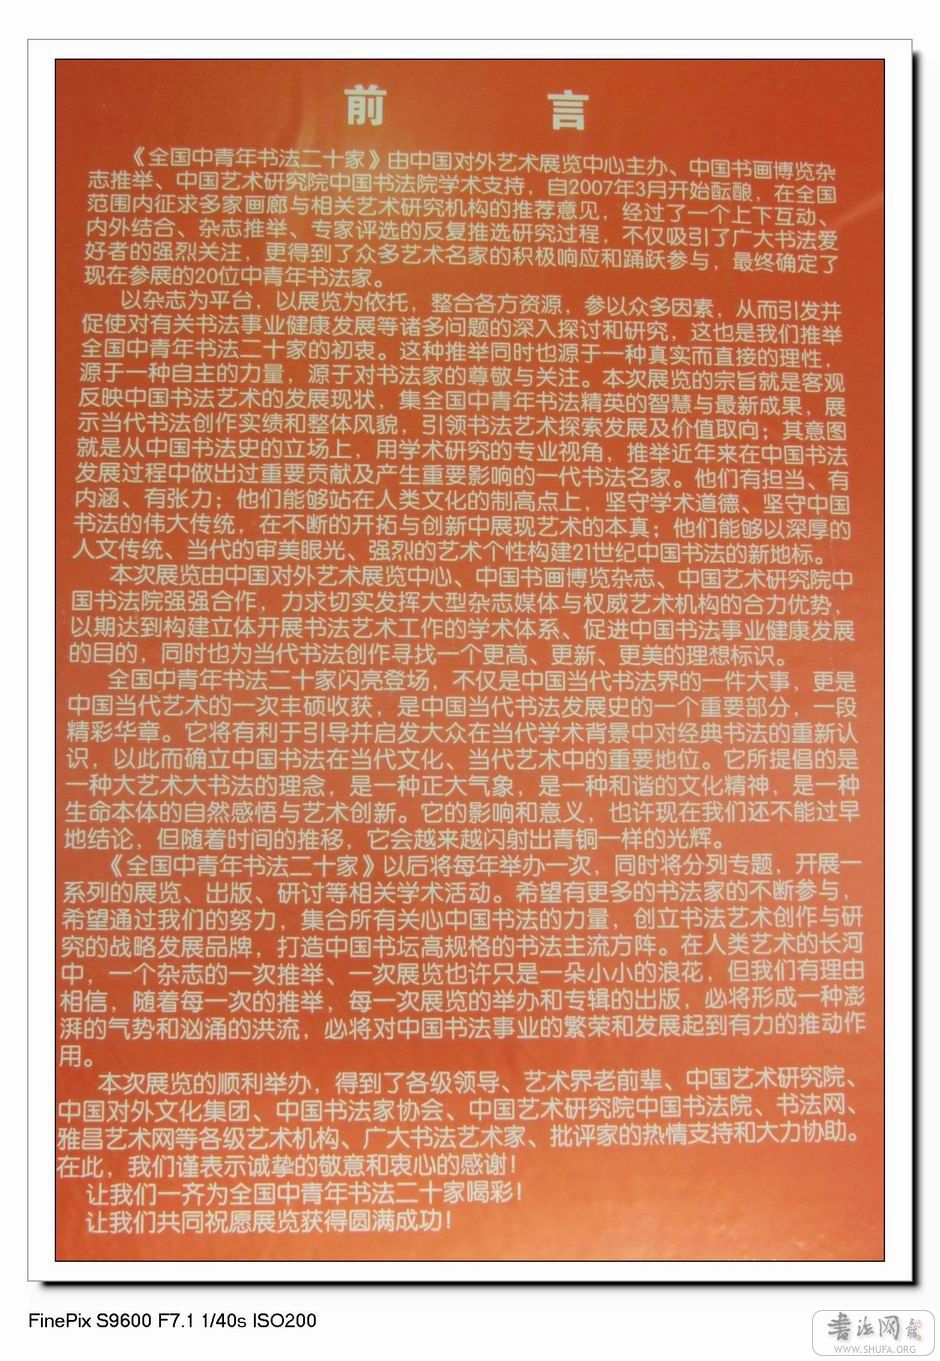 前 言
《全国中青年书法二十家》由中国对外艺术展览中心主办、中国书画博览杂
志推举、中国艺术研究院中国书法院学术支持，自2007年3月开始酝酿，在全国
范围内征求多家画廊与相关艺术研究机构的推荐意见，经过了一个上下互动、
内外结合、杂志推举、专家评选的反复推选研究过程，不仅吸引了广大书法爱
好者的强烈关注，更得到了众多艺术名家的积极响应和踊跃参与，最终确定了
现在参展的20位中青年书法家。
以杂志为平台，以展览为依托，整合各方资源，参以众多因素，从而引发并
促使对有关书法事业健康发展等诸多问题的深入探讨和研究，这也是我们推举
全国中青年书法二十家的初衷。这种推举同时也源于一种真实而直接的理性，
源于一种自主的力量，源于对书法家的尊敬与关注。本次展览的宗旨就是客观
反映中国书法艺术的发展现状，集全国中青年书法精英的智慧与最新成果，展
示当代书法创作实绩和整体风貌，引领书法艺术探索发展及价值取向；其意图
就是从中国书法史的立场上，用学术研究的专业视角，推举近年来在中国书法
发展过程中做出过重要贡献及产生重要影响的一代书法名家。他们有担当、有
内涵、有张力；他们能够站在人类文化的制高点上，坚守学术道德、坚守中国
书法的伟大传统，在不断的开拓与创新中展现艺术的本真；他们能够以深厚的
人文传统、当代的审美眼光、强烈的艺术个性构建21世纪中国书法的新地标。
本次展览由中国对外艺术展览中心、中国书画博览杂志、中国艺术研究院中
国书法院强强合作，力求切实发挥大型杂志媒体与权威艺术机构的合力优势，
以期达到构建立体开展书法艺术工作的学术体系、促进中国书法事业健康发展
的目的，同时也为当代书法创作寻找一个更高、更新、更美的理想标识。
全国中青年书法二十家闪亮登场，不仅是中国当代书法界的一件大事，更是
中国当代艺术的一次丰硕收获，是中国当代书法发展史的一个重要部分，一段
精彩华章。它将有利于引导并启发大众在当代学术背景中对经典书法的重新认
识，以此而确立中国书法在当代文化、当代艺术中的重要地位。它所提倡的是
一种大艺术大书法的理念，是一种正大气象，是一种和谐的文化精神，是一种
生命本体的自然感悟与艺术创新。它的影响和意义，也许现在我们还不能过早
地结论，但随着时间的推移，它会越来越闪射出青铜一样的光辉。
《全国中青年书法二十家》以后将每年举办一次，同时将分列专题，开展一
系列的展览、出版、研讨等相关学术活动。希望有更多的书法家的不断参与，
希望通过我们的努力，集合所有关心中国书法的力量，创立书法艺术创作与研
究的战略发展品牌，打造中国书坛高规格的书法主流方阵。在人类艺术的长河
中，一个杂志的一次推举、一次展览也许只是一朵小小的浪花，但我们有理由
相信，随着每一次的推举，每一次展览的举办和专辑的出版，必将形成一种澎
湃的气势和汹涌的洪流，必将对中国书法事业的繁荣和发展起到有力的推动作
用。
本次展览的顺利举办，得到了各级领导、艺术界老前辈、中国艺术研究院、
中国对外文化集团、中国书法家协会、中国艺术研究院中国书法院、书法网、
雅昌艺术网等各级艺术机构、广大书法艺术家、批评家的热情支持和大力协助。
在此，我们谨表示诚挚的敬意和衷心的感谢！
让我们一齐为全国中青年书法二十家喝彩！
让我们共同祝愿展览获得圆满成功！
FinePix S9600 F7.1 1/40s ISO200
書法网
WWW.SHUFA.ORG